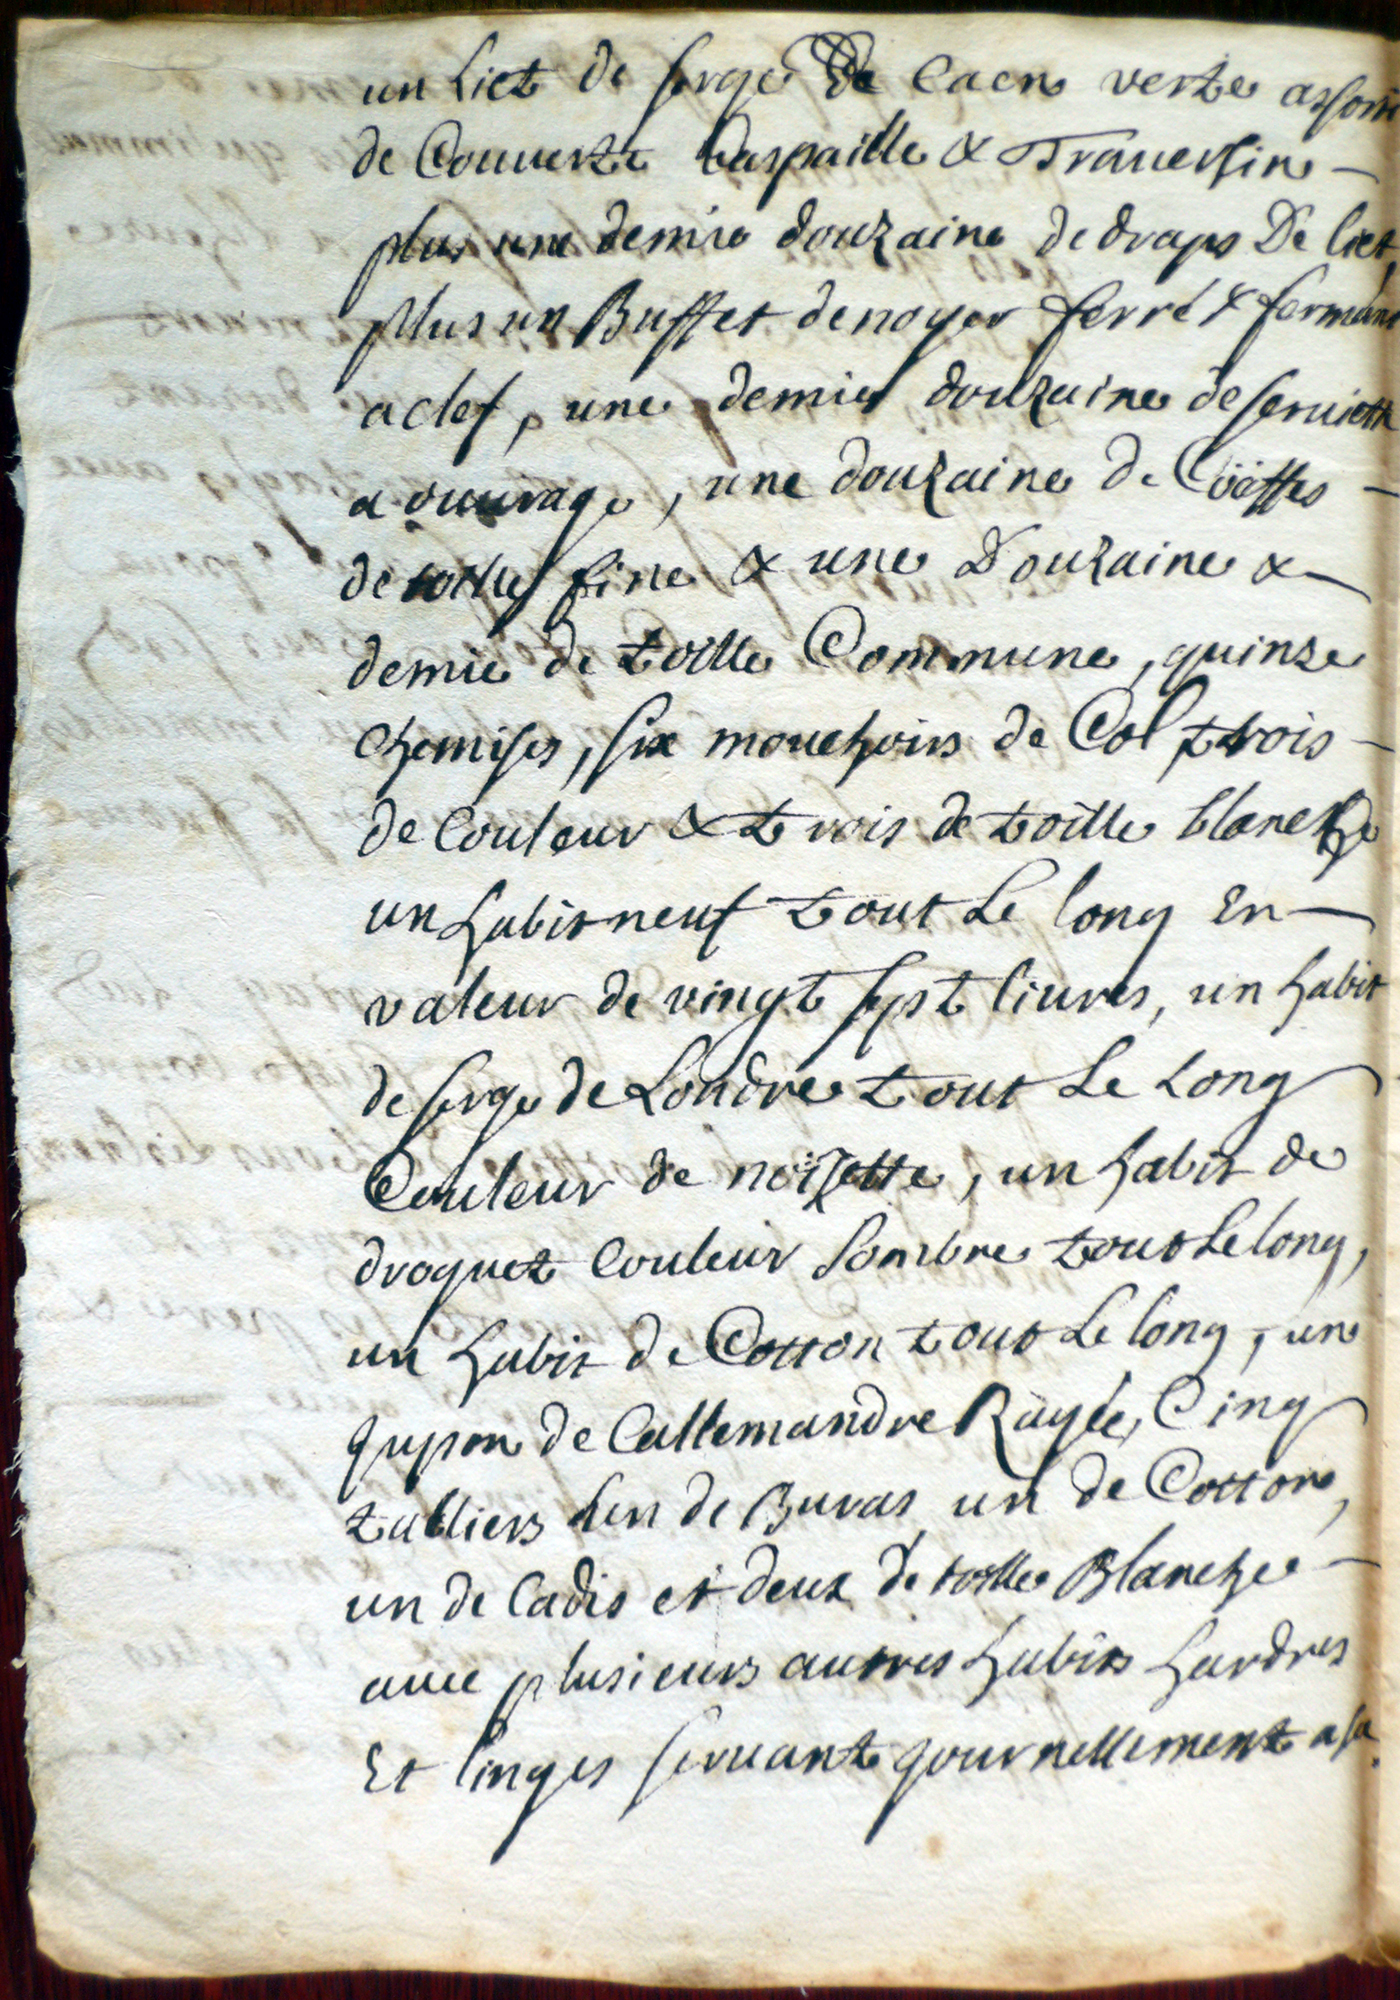 un Lict de serge De Caen verte assorti
de Couverte Paspaille & Traversin —
plus une demie douzaine de draps De lict,
plus un Buffet de noyer ferré & fermant
a clef, une demie douzaine de serviette
a ouvrage, une douzaine de Coëffes —
de toille fine & une Douzaine & —
demie de toille Commune, quinze
chemises, six mouchoirs de Col trois —
de Couleur & trois de toille blanche
un habit neuf tout Le long En —
valeur de vingt sept livres, un habit
de serge de Londre tout Le Long
Couleur de noizette, un habit de
droguet Couleur sombre tout Le long,
un habit de Cotton tout Le long, un
jupon de Callemandre Rayée, Cinq
tabliers un de Buras un de Cotton,
un de Cadis et deux de toille Blanche —
avec plusieurs autres habits hardres
Et linges servant journellement a sa